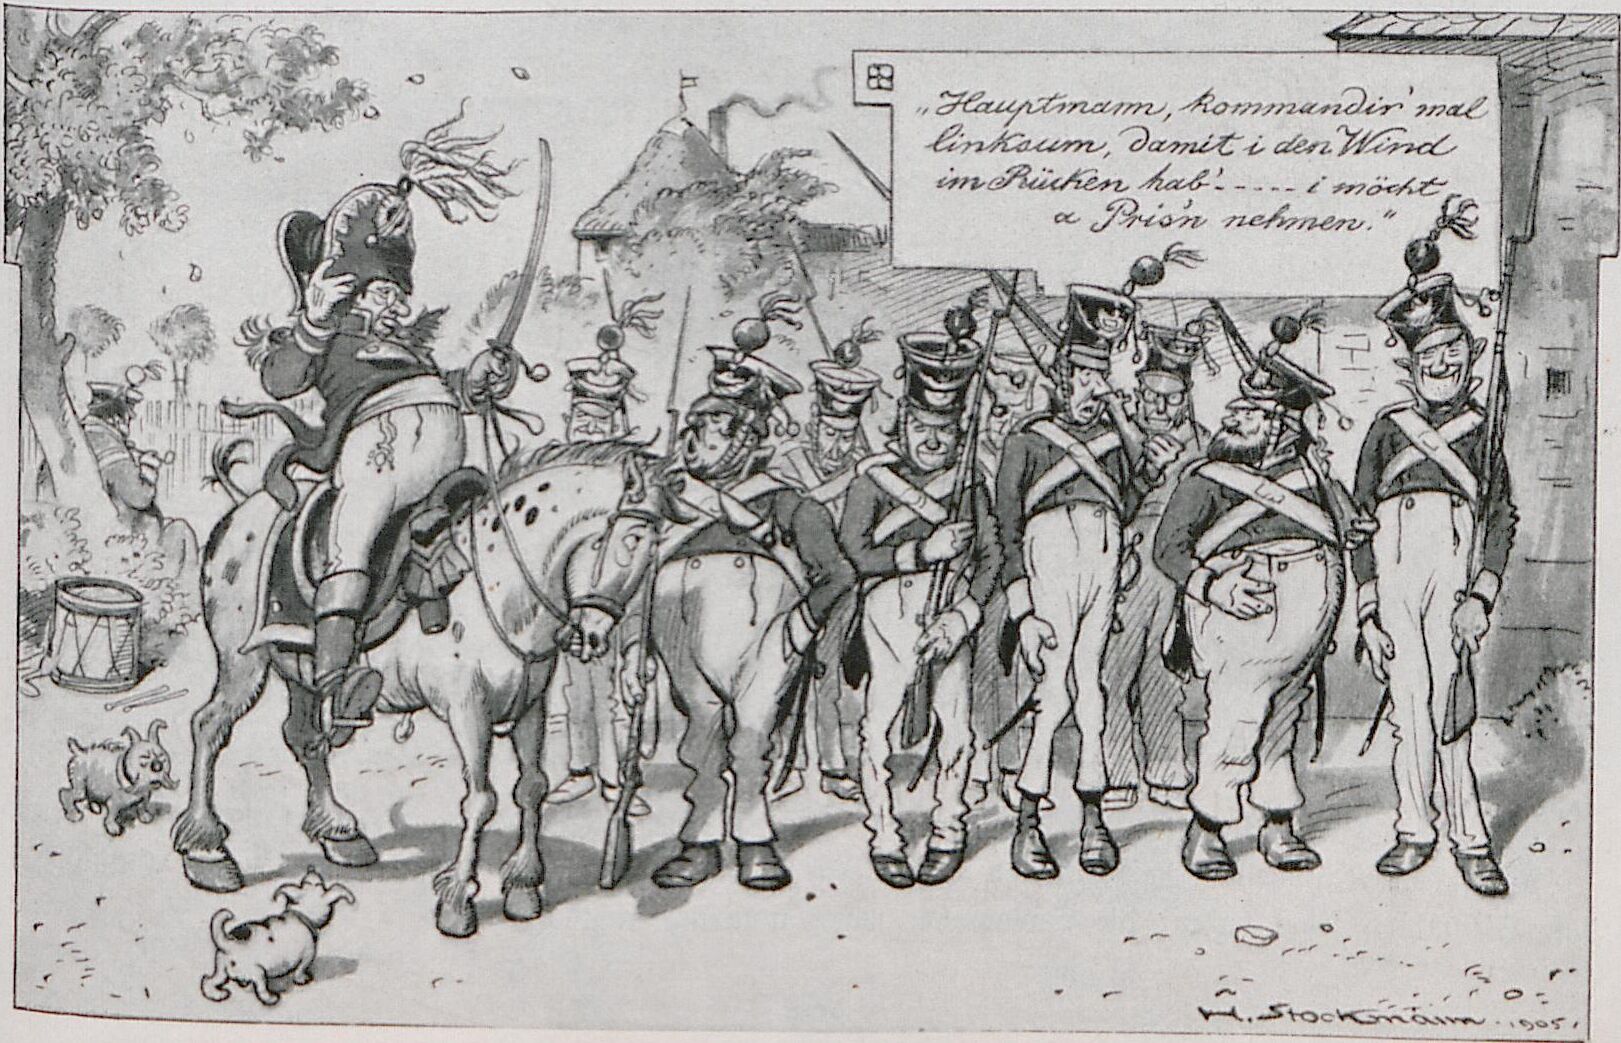 „Hauptmann, kommandir' mal
linksum, damit i den Wind
im Rücken hab'----- i möcht
a Pris'n nehmen."
H. Stockmann. 1905.